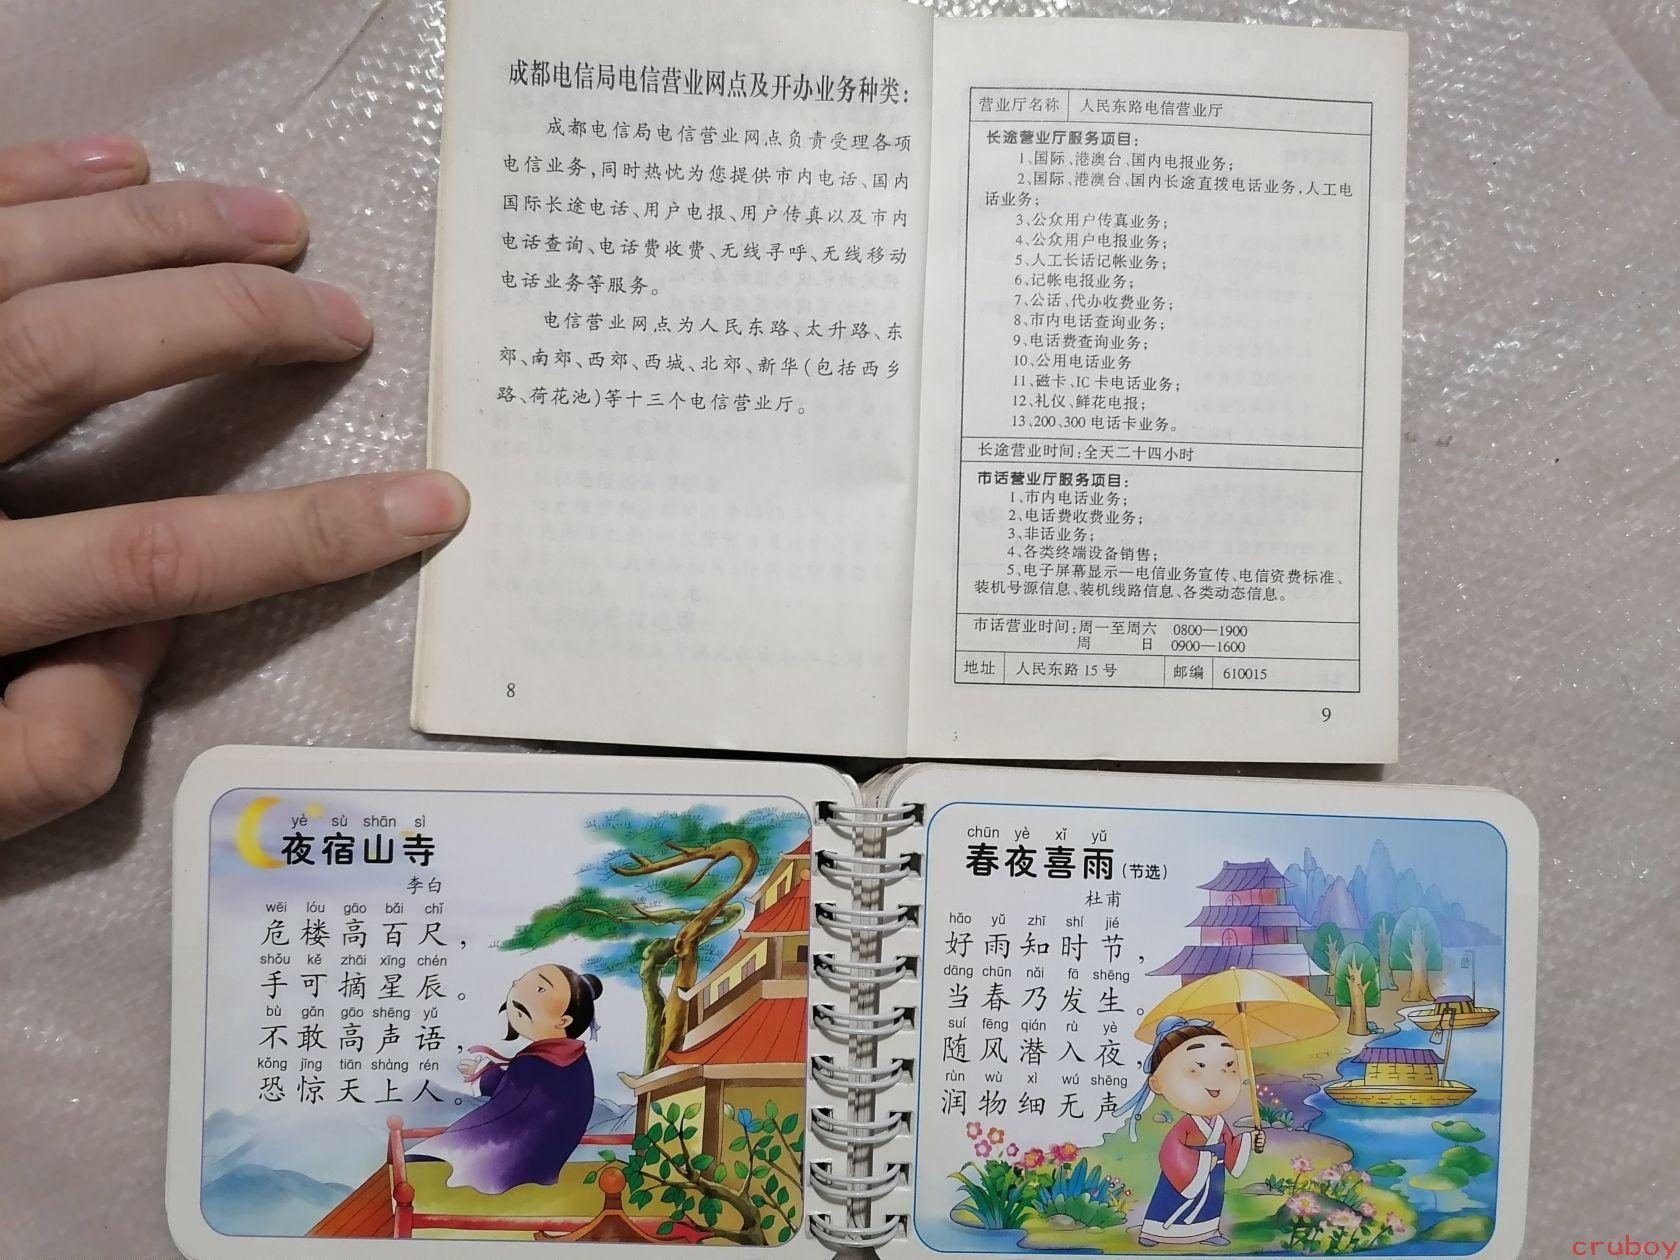 成都电信局电信营业网点及开办业务种类:
成都电信局电信营业网点负责受理各项
电信业务,同时热忱为您提供市内电话、国内
国际长途电话、用户电报、用户传真以及市内
电话查询、电话费收费、无线寻呼、无线移动
电话业务等服务。
电信营业网点为人民东路、太升路、东
郊、南郊、西郊、西城、北郊、新华(包括西乡
路、荷花池)等十三个电信营业厅。
8
营业厅名称 人民东路电信营业厅
长途营业厅服务项目:
1、国际、港澳台、国内电报业务;
2、国际、港澳台、国内长途直拨电话业务,人工电
话业务;
3、公众用户传真业务;
4、公众用户电报业务;
5、人工长话记帐业务;
6、记帐电报业务;
7、公话、代办收费业务;
8、市内电话查询业务;
9、电话费查询业务;
10、公用电话业务
11、磁卡、IC卡电话业务;
12、礼仪、鲜花电报;
13、200、300电话卡业务。
长途营业时间:全天二十四小时
市话营业厅服务项目:
1、市内电话业务;
2、电话费收费业务;
3、非话业务;
4、各类终端设备销售;
5、电子屏幕显示—电信业务宣传、电信资费标准、
装机号源信息、装机线路信息、各类动态信息。
市话营业时间:周一至周六 0800—1900
周 日 0900—1600
地址 人民东路15号 邮编 610015
9
yè sù shān sì
夜宿山寺
李白
wēi lóu gāo bǎi chǐ
危楼高百尺,
shǒu kě zhāi xīng chén
手可摘星辰。
bù gǎn gāo shēng yǔ
不敢高声语,
kǒng jīng tiān shàng rén
恐惊天上人。
chūn yè xǐ yǔ
春夜喜雨(节选)
杜甫
hǎo yǔ zhī shí jié
好雨知时节,
dāng chūn nǎi fā shēng
当春乃发生。
suí fēng qián rù yè
随风潜入夜,
rùn wù xì wú shēng
润物细无声。
cruboy